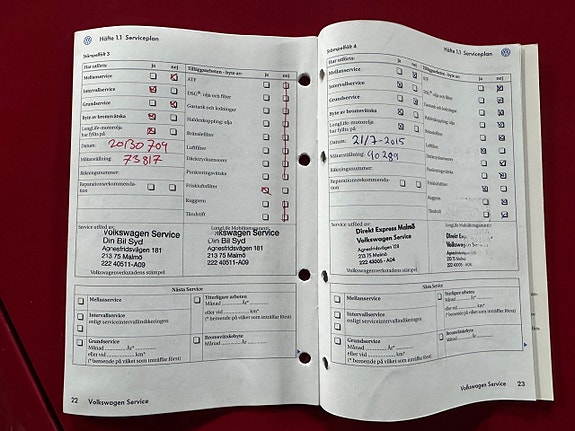 Häfte 1.1 Serviceplan
Stämpelfält 3
Har utförts: ja nej
Mellanservice
Intervallservice
Grundservice
Byte av bromsvätska
LongLife-motorolja
har fyllts på
Datum: 20130709
Mätarställning: 73817
Räkningsnummer:
Reparationsrekommenda-
tion
Tilläggsarbeten - byte av: ja nej
ATF
DSG®-olja och filter
Gastank och ledningar
Haldexkoppling olja
Bränslefilter
Luftfilter
Däckreparationsset
Pankreringsvätska
Friskluftsfilter
Kuggrem
Tändstift
Service utförd av:
Volkswagen Service
Din Bil Syd
Agnesfridsvägen 181
213 75 Malmö
222 40511-A09
Volkswagenverkstadens stämpel
LongLife Mobilitetsgaranti,
Volkswagen Service
Din Bil Syd
Agnesfridsvägen 181
213 75 Malmö
222 40511-A09
Nästa Service
Mellanservice
Intervallservice
enligt serviceintervallindikeringen
Grundservice
Månad .......... År*
eller vid .......... km*
(* beroende på vilket som inträffar först)
Ytterligare arbeten
Månad .......... År*
eller vid .......... km*
(* beroende på vilket som inträffar först)
Bromsvätskebyte
Månad .......... År
22 Volkswagen Service
Häfte 1.1 Serviceplan
Stämpelfält 4
Har utförts: ja nej
Mellanservice
Intervallservice
Grundservice
Byte av bromsvätska
LongLife-motorolja
har fyllts på
Datum: 21/7-2015
Mätarställning: 90289
Räkningsnummer:
Reparationsrekommenda-
tion
Tilläggsarbeten - byte av: ja nej
ATF
DSG®-olja och filter
Gastank och ledningar
Haldexkoppling olja
Bränslefilter
Luftfilter
Kuggrem
Tändstift
Service utförd av:
Direkt Express Malmö
Volkswagen Service
213 75 Malmö
222 43005 - A04
Volkswagenverkstadens stämpel
LongLife Mobilitetsgaranti,
Direkt
Volkswagen
213 75 Malmö
Nästa Service
Mellanservice
Intervallservice
enligt serviceintervallindikeringen
Grundservice
Månad .......... År*
eller vid .......... km*
(* beroende på vilket som inträffar först)
Ytterligare arbeten
Månad .......... År*
eller vid .......... km*
(* beroende på vilket som inträffar först)
Bromsvätskebyte
Månad .......... År
Volkswagen Service 23